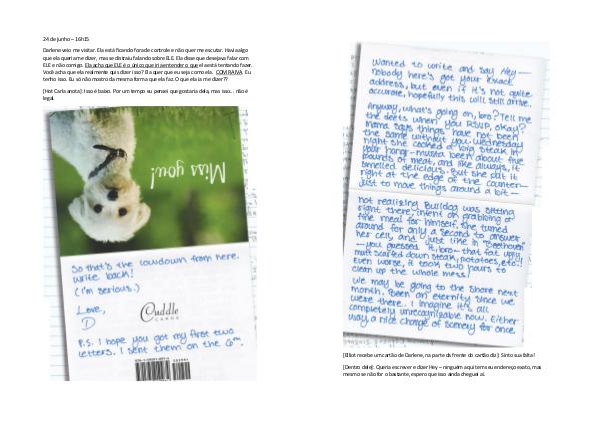 24 de junho – 16h15
Darlene veio me visitar. Ela está ficando fora de controle e não quer me escutar. Havia algo
que ela queria me dizer, mas se distraiu falando sobre ELE. Ela disse que desejava falar com
ELE e não comigo. Ela acha que ELE é o único que irá entender o que ela está tentando fazer.
Você acha que ela realmente quis dizer isso? Ela quer que eu seja com ela. COM RAIVA. Eu
tenho isso. Eu só não mostro da mesma forma que ela faz. O que ela ia me dizer??
[Hot Carla anota]: Isso é baixo. Por um tempo eu pensei que gostaria dela, mas isso... não é
legal.
Miss you!
So that's the lowdown from here.
Write back!
(I'm serious.)
Love,
D
Cuddle
CARDS
P.S. I hope you got my first two
letters. I sent them on the 6th.
Wanted to write and say Hey—
nobody here's got your exact
address, but even if it's not quite
accurate, hopefully this will still arrive.
Anyway, what's going on, bro? Tell me
the deets when you RSVP, okay?
Mama says things have not been
the same without you. Wednesday
night she cooked a big steak in
your honor—musta been about five
pounds of meat, and like always, it
smelled delicious. But she put it
right at the edge of the counter—
just to move things around a bit—
not realizing Bulldog was sitting
right there, intent on grabbing a
fine meal for himself. She turned
around for only a second to answer
her cell, and—just like in "Beethoven"
—you guessed it, bro—that fat ugly
mutt scarfed down steak, potatoes, etc.!
Even worse, it took two hours to
clean up the whole mess!
We may be going to the shore next
month. Been an eternity since we
were there. I imagine it's all
completely unrecognizable now. Either
way, a nice change of scenery for once.
[Elliot recebe um cartão de Darlene, na parte da frente do cartão diz]: Sinto sua falta!
[Dentro dele]: Queria escrever e dizer Hey – ninguém aqui tem seu endereço exato, mas
mesmo se não for o bastante, espero que isso ainda chegue aí.